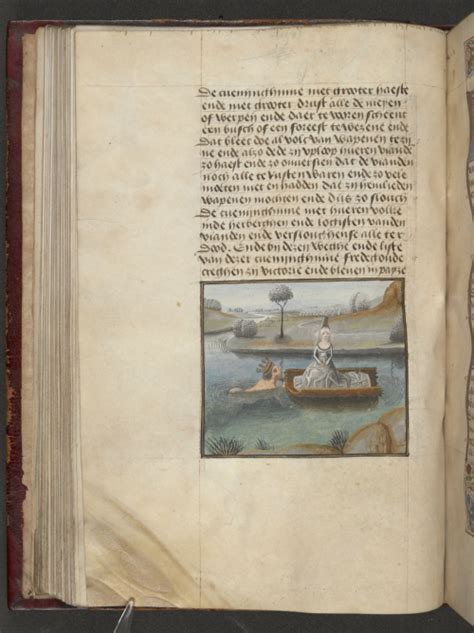 De cueninghinne met grooter haeste
ende met grooter drust alle de meyen
of werpen ende daer te voren scheene
een busch of een foreest te wezene ende
dat bleef doe al volc van wapenen te zy
ne ende alzo dede zy uploop hueren viande
zo haest ende zo onversien dat de vianden
noch alle te rusten waren ende zo vele
moeten niet en hadden dat zy hemlieden
wapenen mochten ende dus zo slouch
De cueninghinne met hueren volcke
inde herberghen ende logisten vanden
vianden ende verslouchense alle ter
dood. Ende by dezen weghe ende liste
van dezer cueninghinne fredegonde
creghen zy victorie ende bleven in payze